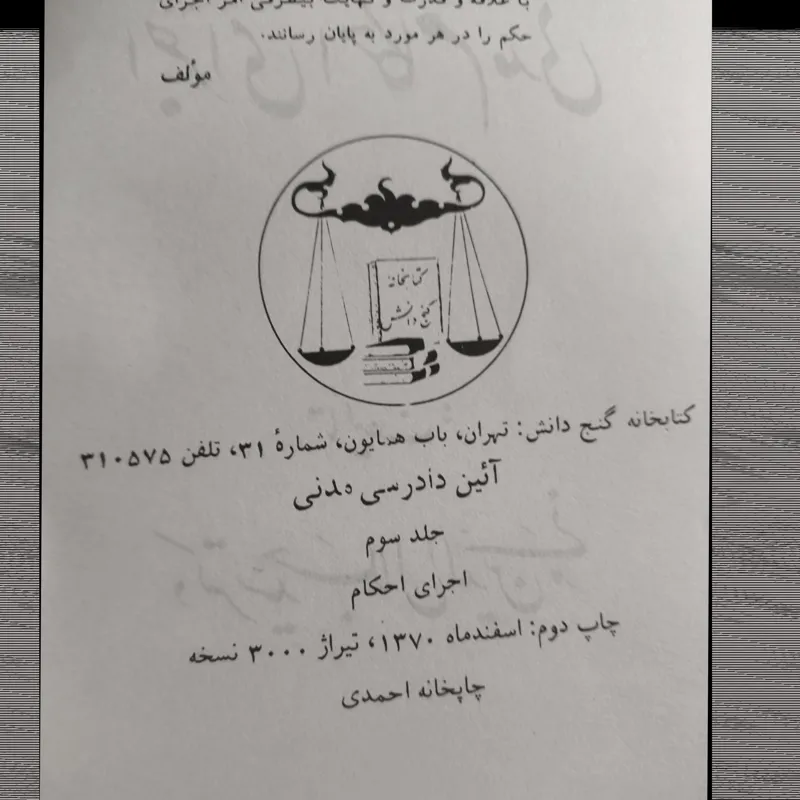 با علاقه و قدرت و نهایت بیطرفی امر اجرای
حکم را در هر مورد به پایان رسانند.
مؤلف
کتابخانه
گنج دانش
کتابخانه گنج دانش: تهران، باب همایون، شمارهٔ ۳۱، تلفن ۳۱۰۵۷۵
آئین دادرسی مدنی
جلد سوم
اجرای احکام
چاپ دوم: اسفندماه ۱۳۷۰، تیراژ ۳۰۰۰ نسخه
چاپخانه احمدی